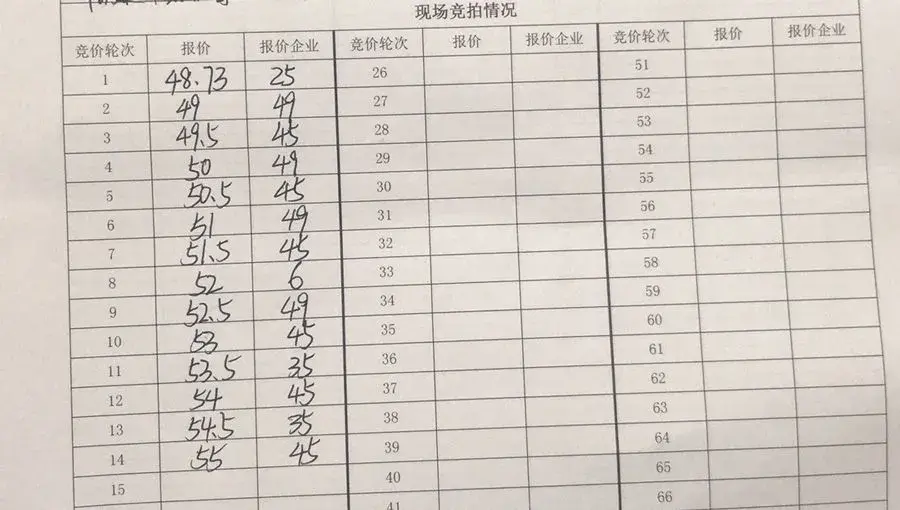 现场竞拍情况
竞价轮次 报价 报价企业 竞价轮次 报价 报价企业 竞价轮次 报价 报价企业
1 48.73 25 26 51
2 49 49 27 52
3 49.5 45 28 53
4 50 49 29 54
5 50.5 45 30 55
6 51 49 31 56
7 51.5 45 32 57
8 52 6 33 58
9 52.5 49 34 59
10 53 45 35 60
11 53.5 35 36 61
12 54 45 37 62
13 54.5 35 38 63
14 55 45 39 64
15 40 65
41 66